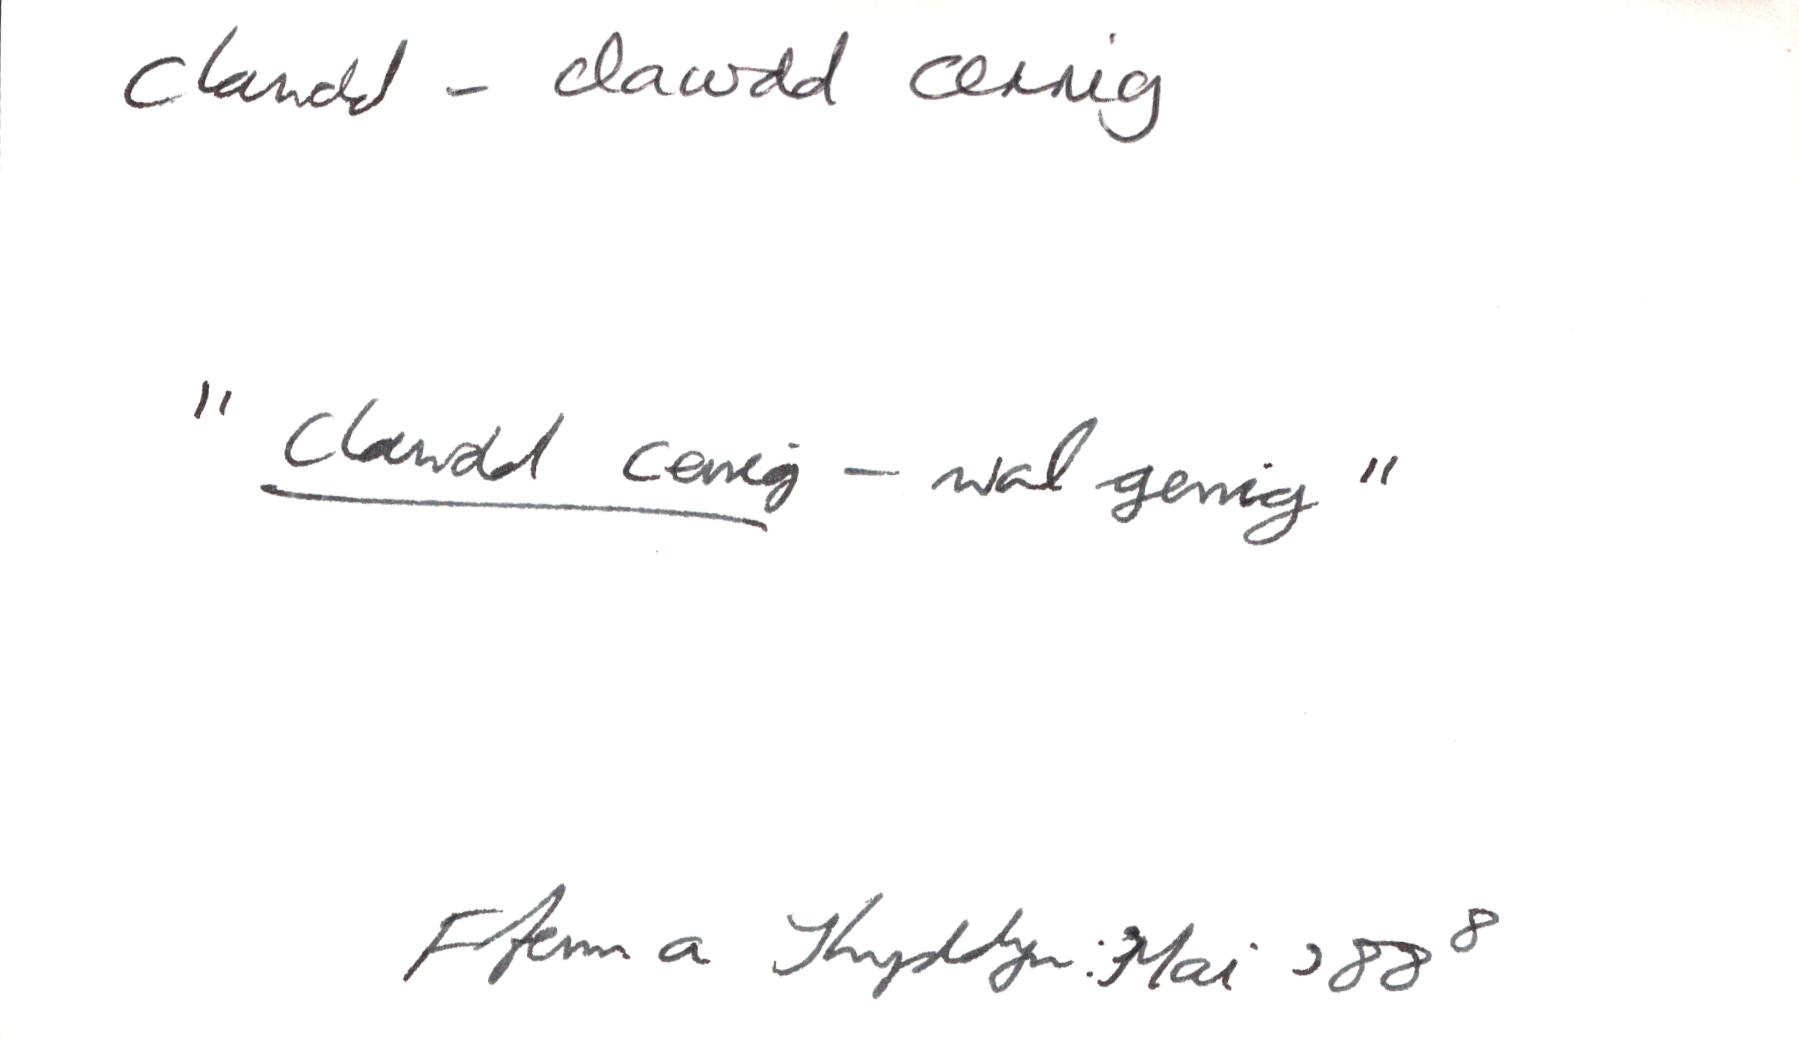 clawdd - clawdd cerrig
" Clawdd cerrig - wal gerrig "
Fferm a Thyddyn: Mai '88 8